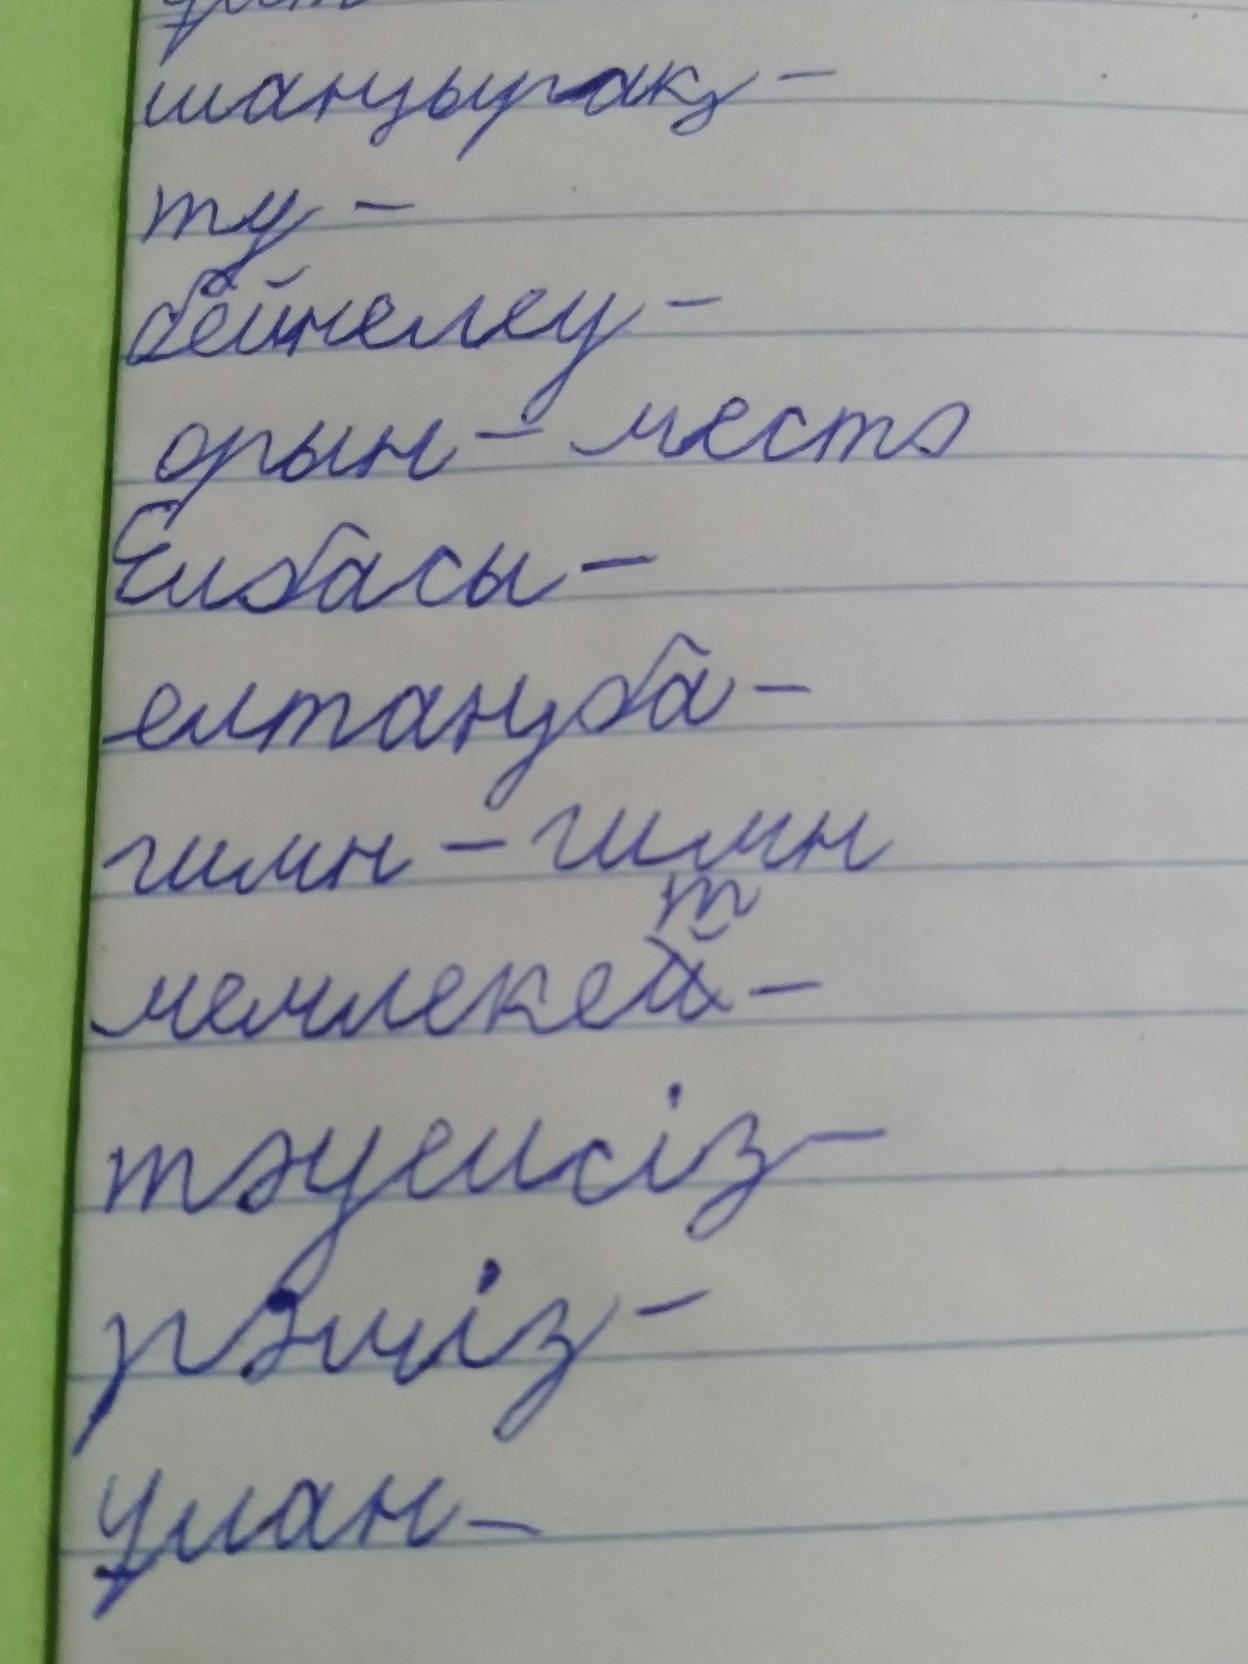 шаңырақ -
ту -
бейнелеу -
орын - место
Елбасы -
елтаңба -
гимн - гимн
мемлекет -
тәуелсіз -
рәміз -
ұлан -